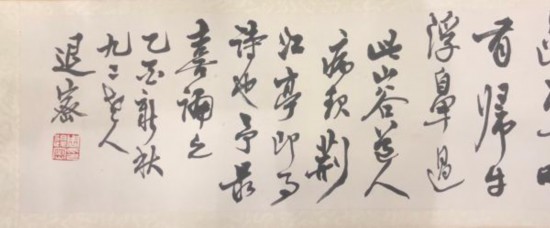 有歸牛
浮鼻過
此山谷道人
病起荆
江亭即事
詩也予最
喜誦之
乙酉新秋
九二老人
退密